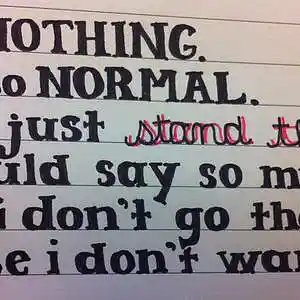 NOTHING.
so NORMAL.
just stand th
uld say so m
i don't go th
e i don't wan